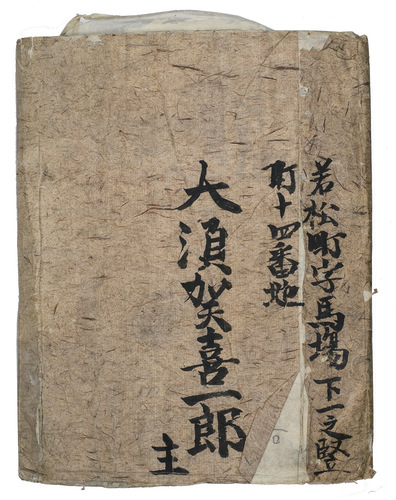 若松町字馬場下一之竪
町十四番地
大須賀喜一郎
主